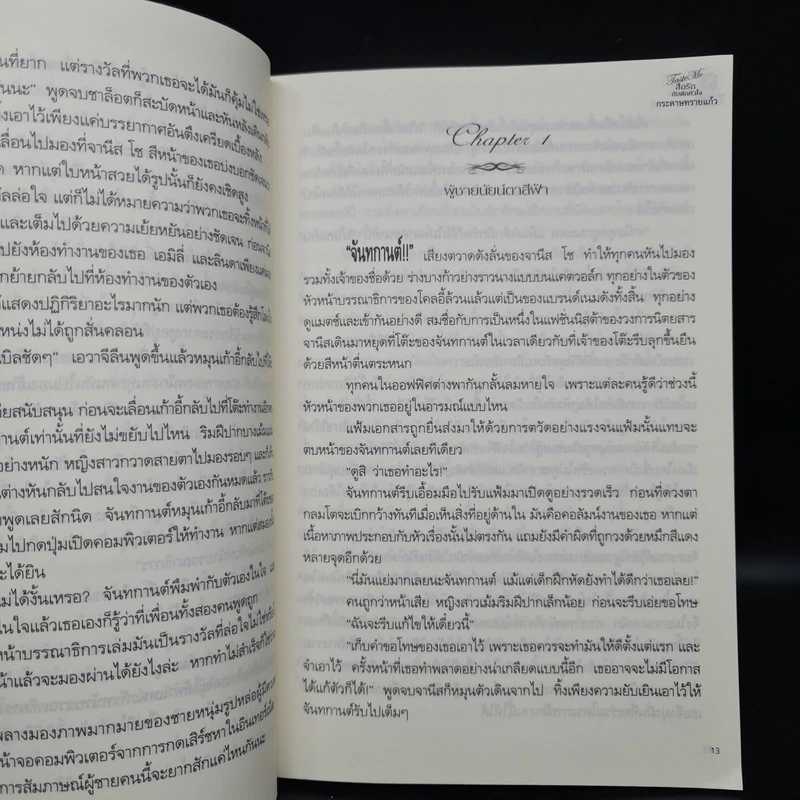 นที่ยาก แต่รางวัลที่พวกเธอจะได้มันก็คุ้มไม่ใช่
นนะ” พูดจบชาล็อตก็สะบัดหน้าและหันหลังเดิน
ไว้เพียงแค่บรรยากาศอันตึงเครียดเบื้องหลัง
ลื่อนไปมองที่จานีส โช สีหน้าของเธอบ่งบอกชัดเจน
หากแต่ใบหน้าสวยได้รูปนั้นก็ยังคงเชิดสูง
ล่อใจ แต่ก็ไม่ได้หมายความว่าพวกเธอจะทิ้งหน้าที่
และเต็มไปด้วยความเย้ยหยันอย่างชัดเจน ก่อน
ปยังห้องทำงานของเธอ เอมิลี่ และลินดาเพียง
กย้ายกลับไปที่ห้องทำงานของตัวเอง
แสดงปฏิกิริยาอะไรมากนัก แต่พวกเธอต้องรู้สึก
หน่งไม่ได้ถูกสั่นคลอน
บิลชัดๆ” เอวาจีลีนพูดขึ้นแล้วหมุนเก้าอี้กลับไปที่
ยสนับสนุน ก่อนจะเลื่อนเก้าอี้กลับไปที่โต๊ะทำงาน
านต์เท่านั้นที่ยังไม่ขยับไปไหน ริมฝีปากบางเม้ม
อย่างหนัก หญิงสาวกวาดสายตาไปมองรอบๆ
นต่างหันกลับไปสนใจงานของตัวเองกันหมดแล้ว
พูดเลยสักนิด จันทกานต์หมุนเก้าอี้กลับมาที่โต๊ะ
มไปกดปุ่มเปิดคอมพิวเตอร์ให้ทำงาน หากแต่สมอง
ะได้ยิน
ม่ได้งั้นเหรอ? จันทกานต์พึมพำกับตัวเองในใจ
ในใจแล้วเธอเองก็รู้ว่าที่เพื่อนทั้งสองคนพูดถูก
หน้าบรรณาธิการเล่มมันเป็นรางวัลที่ล่อใจ
น้าแล้วจะมองผ่านได้ยังไงล่ะ หากทำไม่สำเร็จก็
พลางมองภาพมากมายของชายหนุ่มรูปหล่อผู้มี
น้าจอคอมพิวเตอร์จากการกดเสิร์ชหาในอินเทอร์เน็ต
การสัมภาษณ์ผู้ชายคนนี้จะยากสักแค่ไหนกันนะ
Taste Me
สื่อรัก
กับดักหัวใจ
กระดาษทรายแก้ว
Chapter 1
ผู้ชายนัยน์ตาสีฟ้า
“จันทกานต์!!” เสียงตวาดดังลั่นของจานีส โช ทำให้ทุกคนหันไปมอง
รวมทั้งเจ้าของชื่อด้วย ร่างบางก้าวย่างราวนางแบบบนแคตวอล์ก ทุกอย่างในตัวของ
หัวหน้าบรรณาธิการของโคลอี้ล้วนแล้วแต่เป็นของแบรนด์เนมดังทั้งสิ้น ทุกอย่าง
ดูแมตช์และเข้ากันอย่างดี สมชื่อกับการเป็นหนึ่งในแฟชั่นนิสต้าของวงการนิตยสาร
จานีสเดินมาหยุดที่โต๊ะของจันทกานต์ในเวลาเดียวกับที่เจ้าของโต๊ะรีบลุกขึ้นยืน
ด้วยสีหน้าตื่นตระหนก
ทุกคนในออฟฟิศต่างพากันกลั้นลมหายใจ เพราะแต่ละคนรู้ดีว่าช่วงนี้
หัวหน้าของพวกเธออยู่ในอารมณ์แบบไหน
แฟ้มเอกสารถูกยื่นส่งมาให้ด้วยการตวัดอย่างแรงจนแฟ้มนั้นแทบจะ
ตบหน้าของจันทกานต์เลยทีเดียว
“ดูสิ ว่าเธอทำอะไร!”
จันทกานต์รีบเอื้อมมือไปรับแฟ้มมาเปิดดูอย่างรวดเร็ว ก่อนที่ดวงตา
กลมโตจะเบิกกว้างทันทีเมื่อเห็นสิ่งที่อยู่ด้านใน มันคือคอลัมน์งานของเธอ หากแต่
เนื้อหาภาพประกอบกับหัวเรื่องนั้นไม่ตรงกัน แถมยังมีคำผิดที่ถูกวงด้วยหมึกสีแดง
หลายจุดอีกด้วย
“นี่มันแย่มากเลยนะจันทกานต์ แม้แต่เด็กฝึกหัดยังทำได้ดีกว่าเธอเลย!”
คนถูกว่าหน้าเสีย หญิงสาวเม้มริมฝีปากเล็กน้อย ก่อนจะรีบเอ่ยขอโทษ
“ฉันจะรีบแก้ไขให้เดี๋ยวนี้”
“เก็บคำขอโทษของเธอเอาไว้ เพราะเธอควรจะทำมันให้ดีตั้งแต่แรก และ
จำเอาไว้ ครั้งหน้าที่เธอทำพลาดอย่างน่าเกลียดแบบนี้อีก เธออาจจะไม่มีโอกาส
ได้แก้ตัวก็ได้!” พูดจบจานีสก็หมุนตัวเดินจากไป ทิ้งเพียงความยับเยินเอาไว้ให้
จันทกานต์รับไปเต็มๆ
13